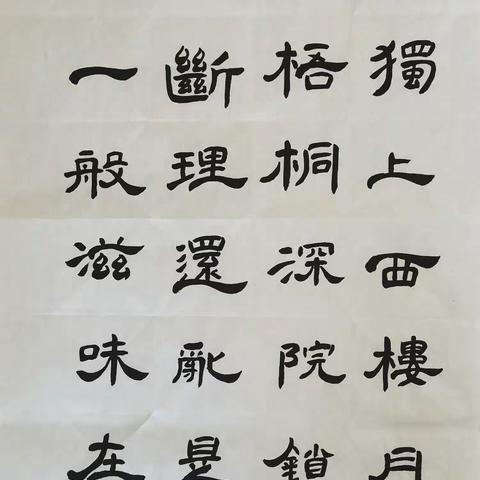 獨上西樓月
梧桐深院鎖
斷理還亂是
一般滋味在